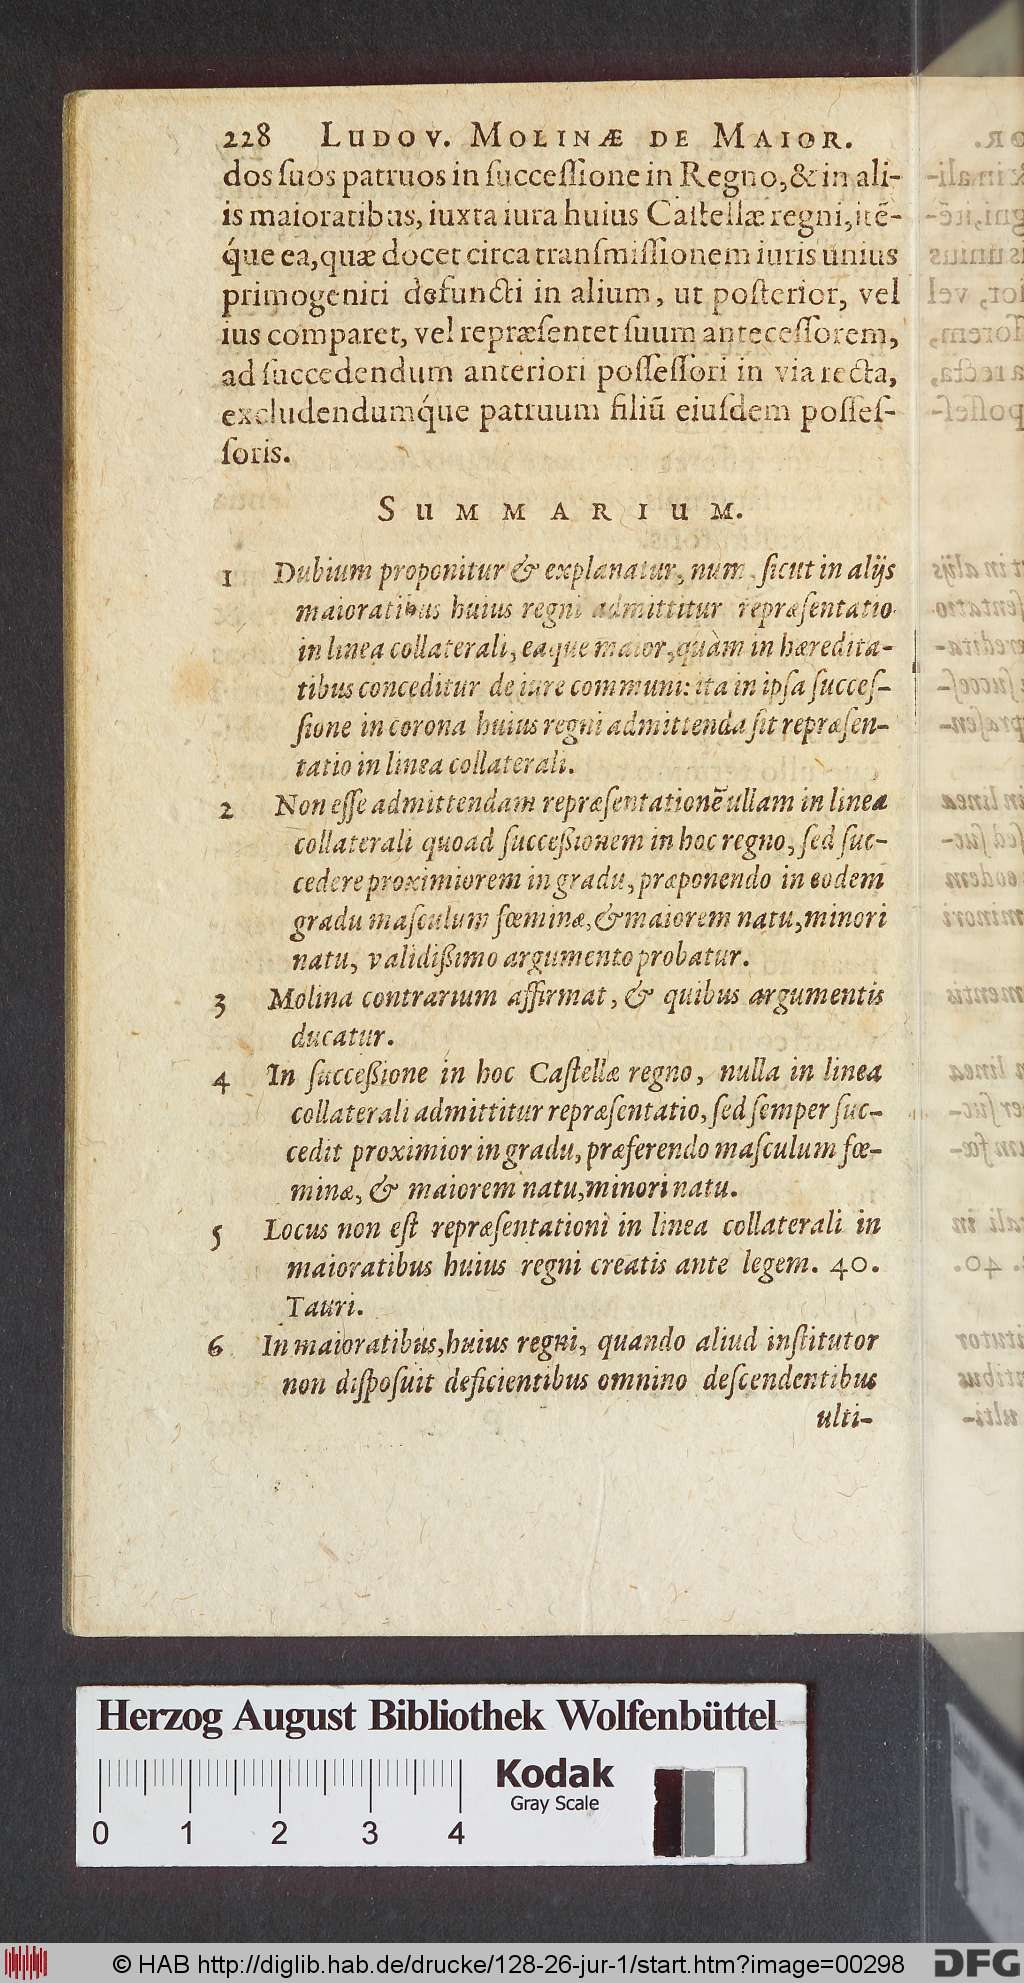 228 LUDOV. MOLINÆ DE MAIOR.
dos ſuos patruos in ſucceſſione in Regno,& in ali-
is maioratibus, iuxta iura huius Caſtellæ regni, itẽ-
q́ue ea, quæ docet circa tranſmiſſionem iuris unius
primogeniti defuncti in alium, ut poſterior, vel
ius comparet, vel repræſentet ſuum anteceſſorem,
ad ſuccedendum anteriori poſſeſſori in via recta,
excludendumq́ue patruum filiũ eiuſdem poſſeſ-
ſoris.
SUMMARIUM.
1 Dubium proponitur & explanatur, num, ſicut in alijs
maioratibus huius regni admittitur repræſentatio
in linea collaterali, eaque maior, quàm in hæredita-
tibus conceditur de iure communi: ita in ipſa ſucceſ-
ſione in corona huius regni admittenda ſit repræſen-
tatio in linea collaterali.
2 Non eſſe admittendam repræſentationẽ ullam in linea
collaterali quoad ſucceßionem in hoc regno, ſed ſuc-
cedere proximiorem in gradu, præponendo in eodem
gradu maſculum fœminæ, & maiorem natu, minori
natu, validißimo argumento probatur.
3 Molina contrarium affirmat, & quibus argumentis
ducatur.
4 In ſucceßione in hoc Caſtellæ regno, nulla in linea
collaterali admittitur repræſentatio, ſed ſemper ſuc-
cedit proximior in gradu, præferendo maſculum fœ-
minæ, & maiorem natu, minori natu.
5 Locus non eſt repræſentationi in linea collaterali in
maioratibus huius regni creatis ante legem. 40.
Tauri.
6 In maioratibus, huius regni, quando aliud inſtitutor
non diſpoſuit deficientibus omnino deſcendentibus
ulti-
Herzog August Bibliothek Wolfenbüttel
Kodak
Gray Scale
0 1 2 3 4
© HAB http://diglib.hab.de/drucke/128-26-jur-1/start.htm?image=00298
DFG